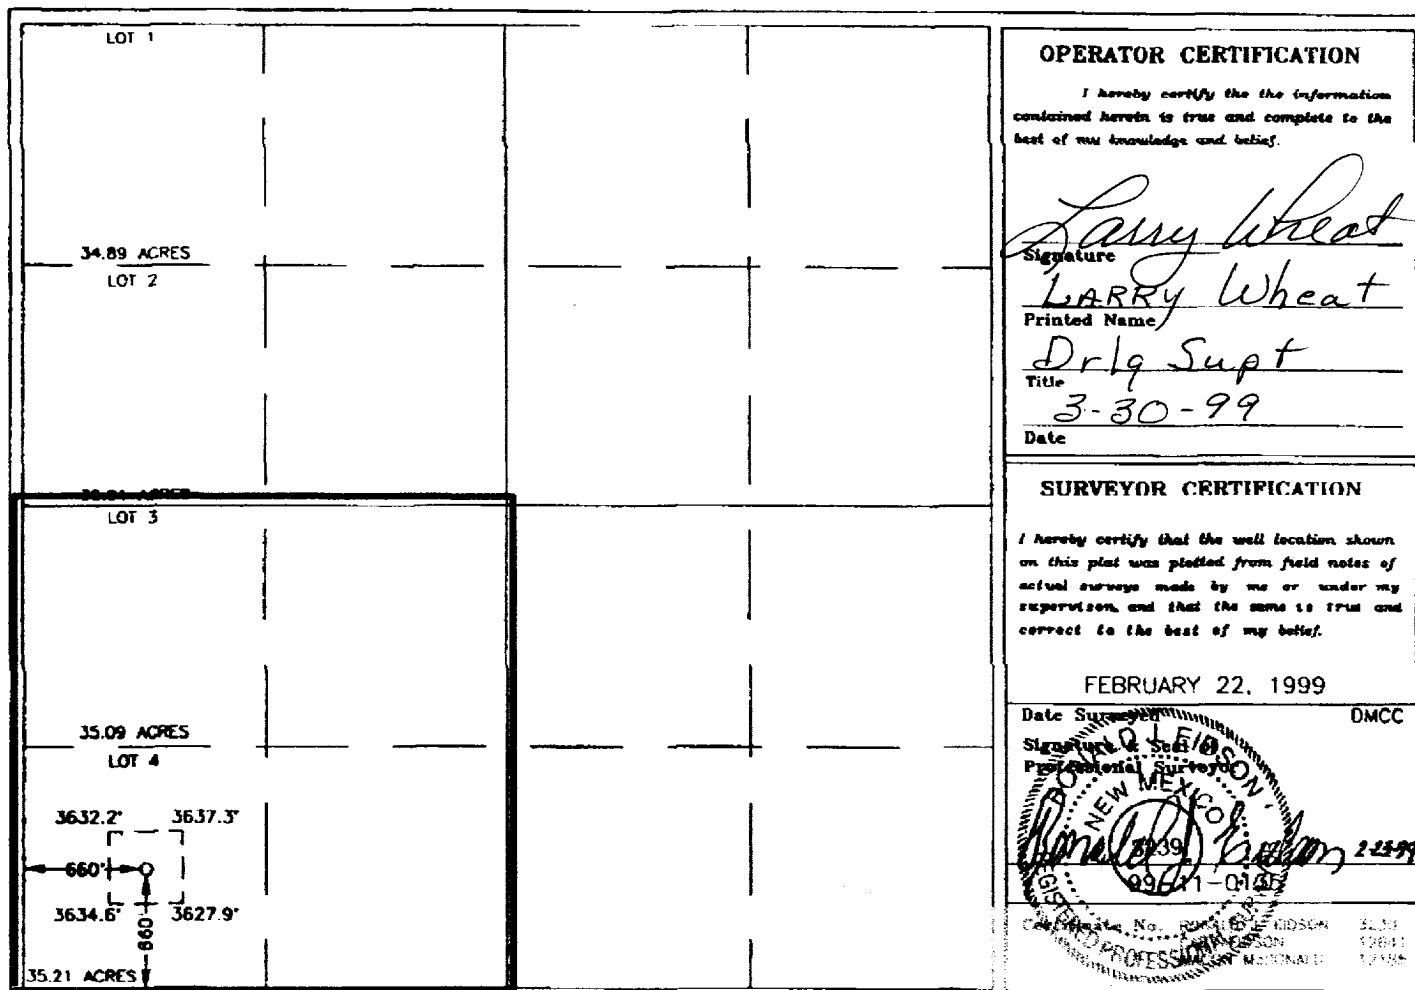 LOT 1
34.89 ACRES
LOT 2
ACRES
LOT 3
35.09 ACRES
LOT 4
3632.2' 3637.3'
660'
3634.6' 3627.9'
660'
35.21 ACRES
OPERATOR CERTIFICATION
I hereby certify the the information
contained herein is true and complete to the
best of my knowledge and belief.
Larry Wheat
Signature
LARRY Wheat
Printed Name
Drlg Supt
Title
3-30-99
Date
SURVEYOR CERTIFICATION
I hereby certify that the well location shown
on this plat was plotted from field notes of
actual surveys made by me or under my
supervison, and that the same is true and
correct to the best of my belief.
FEBRUARY 22, 1999
Date Surveyed DMCC
Signature & Seal of
Professional Surveyor
RONALD J. EIDSON
NEW MEXICO
3239
REGISTERED PROFESSIONAL
Certificate No. RONALD J. EIDSON 3239
EIDSON 12641
McDONALD 12185